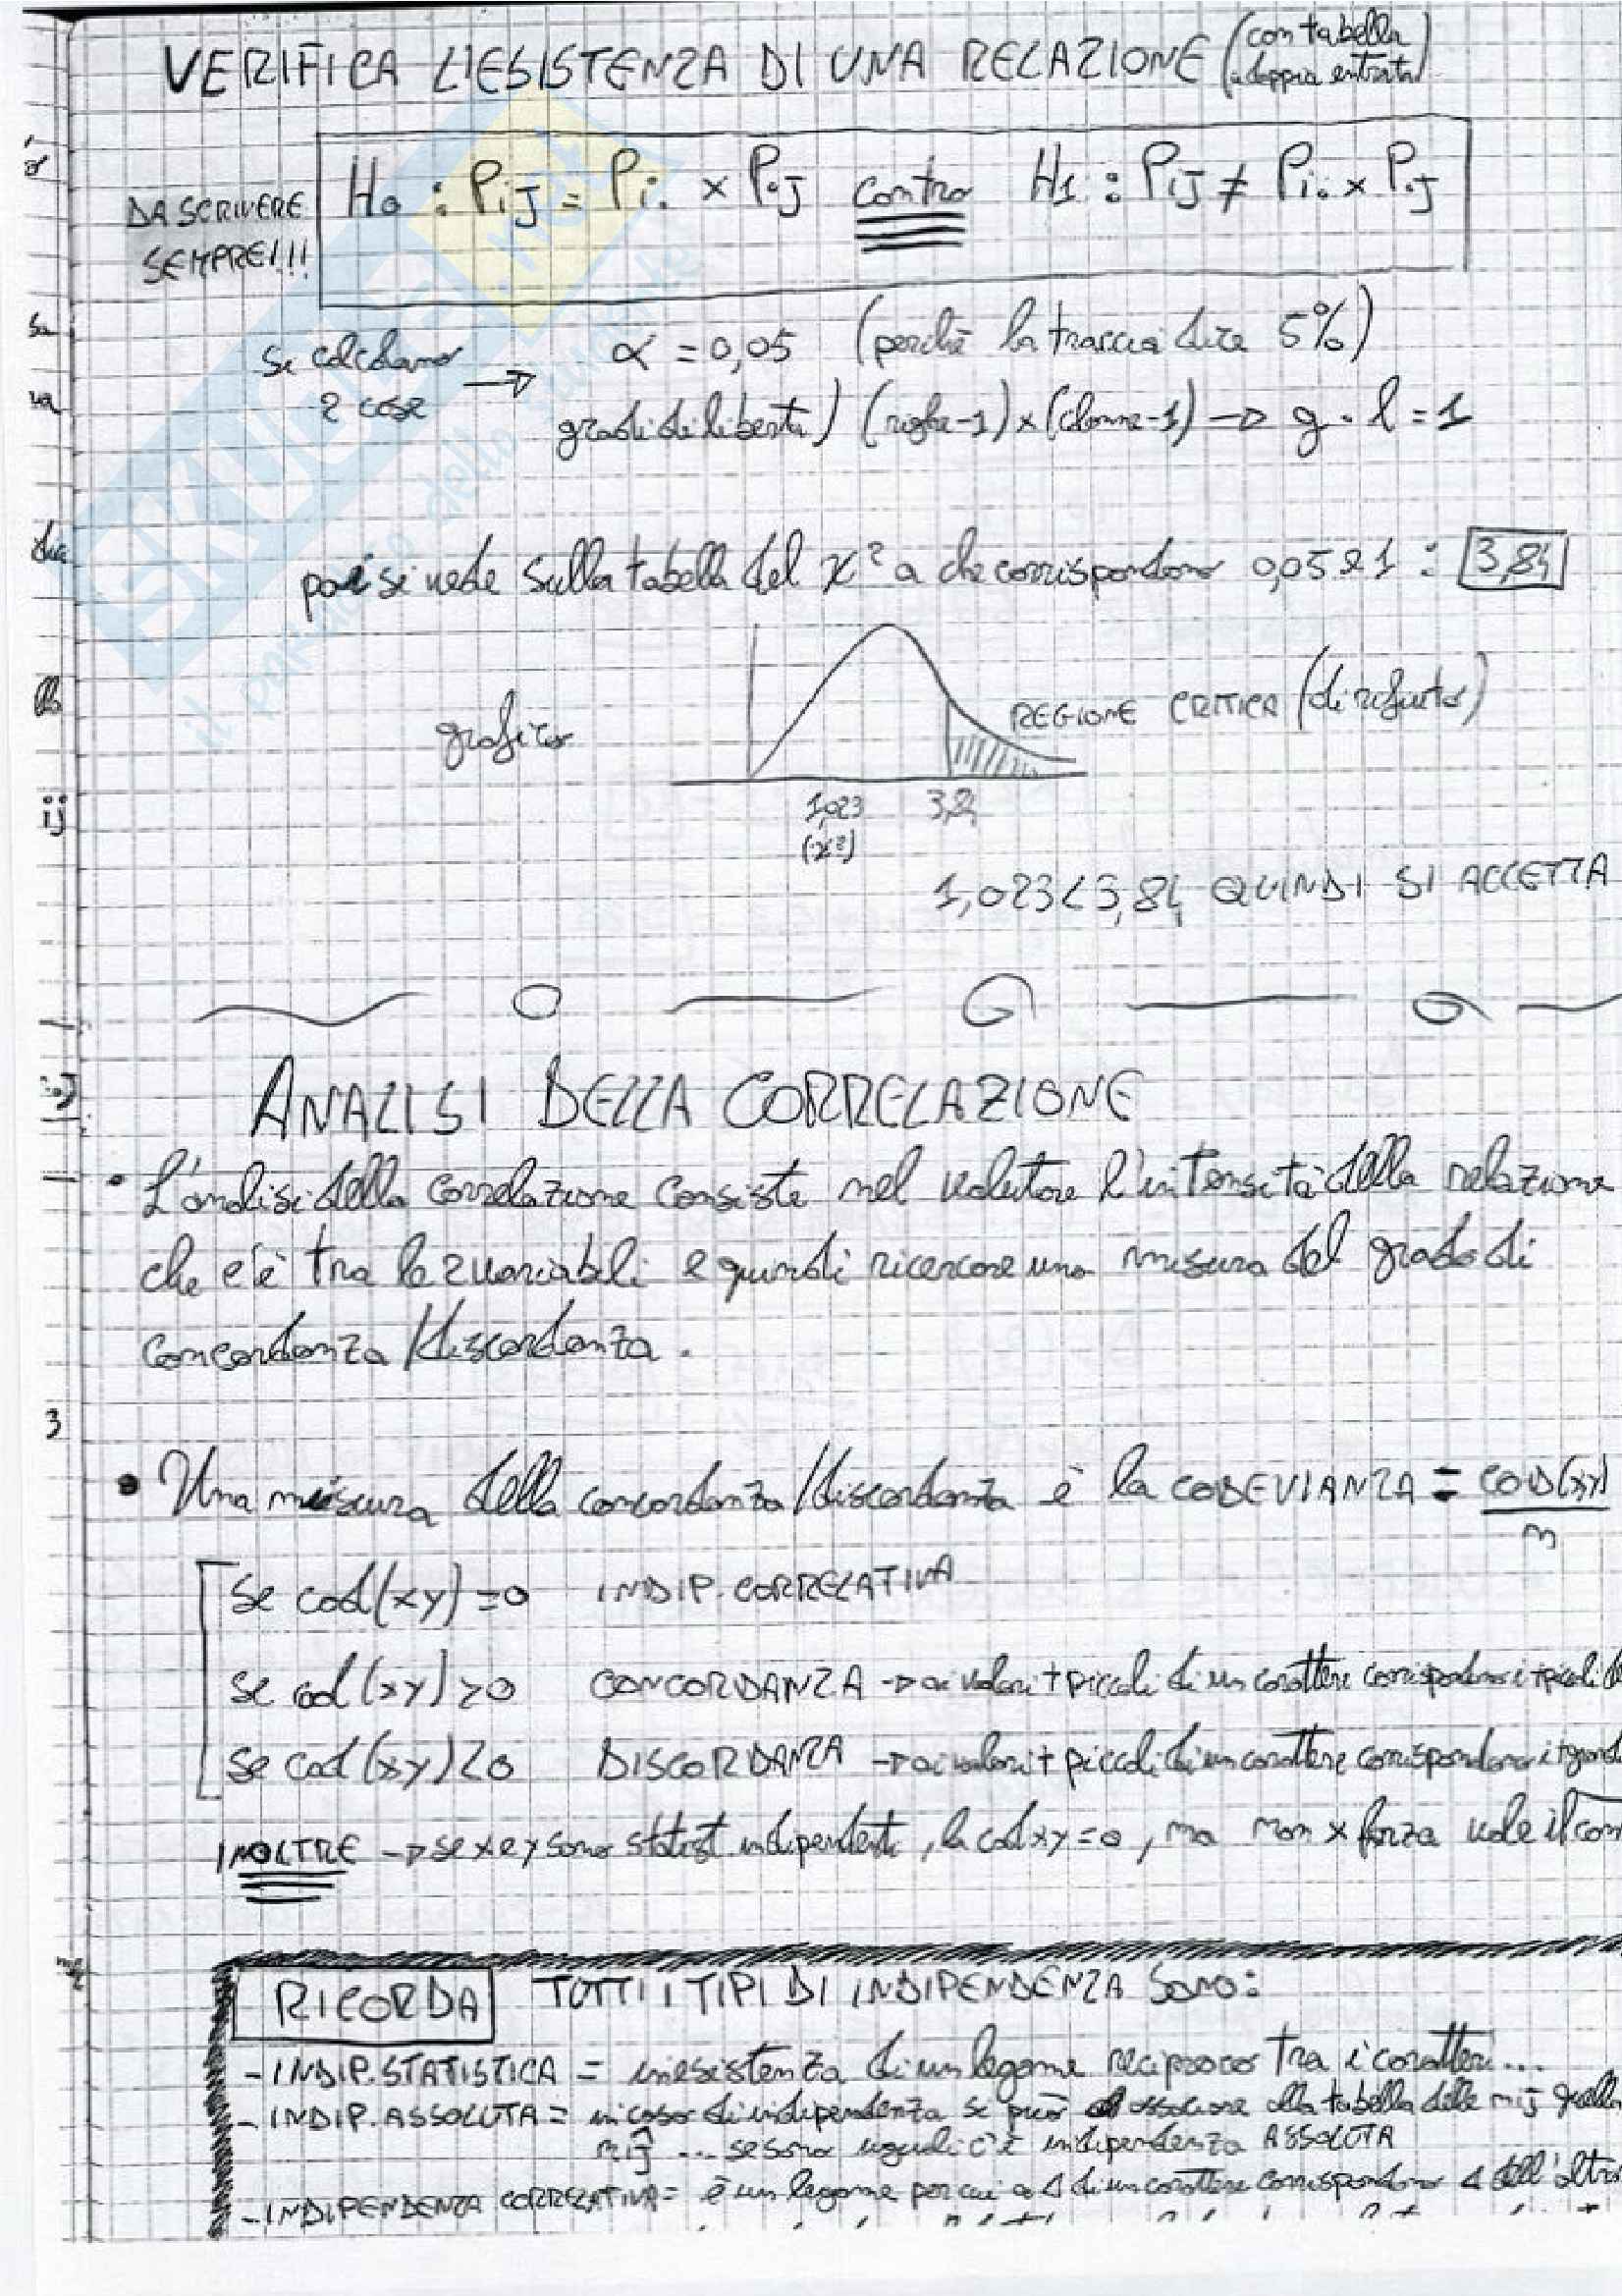 VERIFICA L'ESISTENZA DI UNA RELAZIONE (con tabella a doppia entrata)
DA SCRIVERE SEMPRE!!!
H0 : Pij = Pi. × P.j contro H1 : Pij ≠ Pi. × P.j
si calcolano 2 cose →
α = 0,05 (perchè la traccia dice 5%)
gradi di libertà) (righe-1)×(colonne-1) → g.l = 1
poi si vede sulla tabella del χ² a che corrispondono 0,05 e 1 : 3,84
grafico
REGIONE CRITICA (di rifiuto)
1,023 3,84
(χ²)
1,023 < 3,84 QUINDI SI ACCETTA
ANALISI DELLA CORRELAZIONE
• L'analisi della correlazione consiste nel valutare l'intensità della relazione
che c'è tra le 2 variabili e quindi ricercare una misura del grado di
concordanza/discordanza.
• Una misura della concordanza/discordanza è la CODEVIANZA = COD(xy)/n
se cod(xy)=0 INDIP. CORRELATIVA
se cod(xy)>0 CONCORDANZA → ai valori + piccoli di un carattere corrispondono i + piccoli
se cod(xy)<0 DISCORDANZA → ai valori + piccoli di un carattere corrispondono i + grandi
INOLTRE → se x e y sono statist. indipendenti, la cod xy=0, ma non x forza vale il con
RICORDA TUTTI I TIPI DI INDIPENDENZA SONO:
- INDIP. STATISTICA = inesistenza di un legame reciproco tra i caratteri...
- INDIP. ASSOLUTA = in caso di indipendenza si può associare alla tabella delle nij quella
n̂ij ... se sono uguali c'è indipendenza ASSOLUTA
- INDIPENDENZA CORRELATIVA = è un legame per cui a Δ di un carattere corrispondono Δ dell'altro
SKUOLA.net
il paradiso dello studente